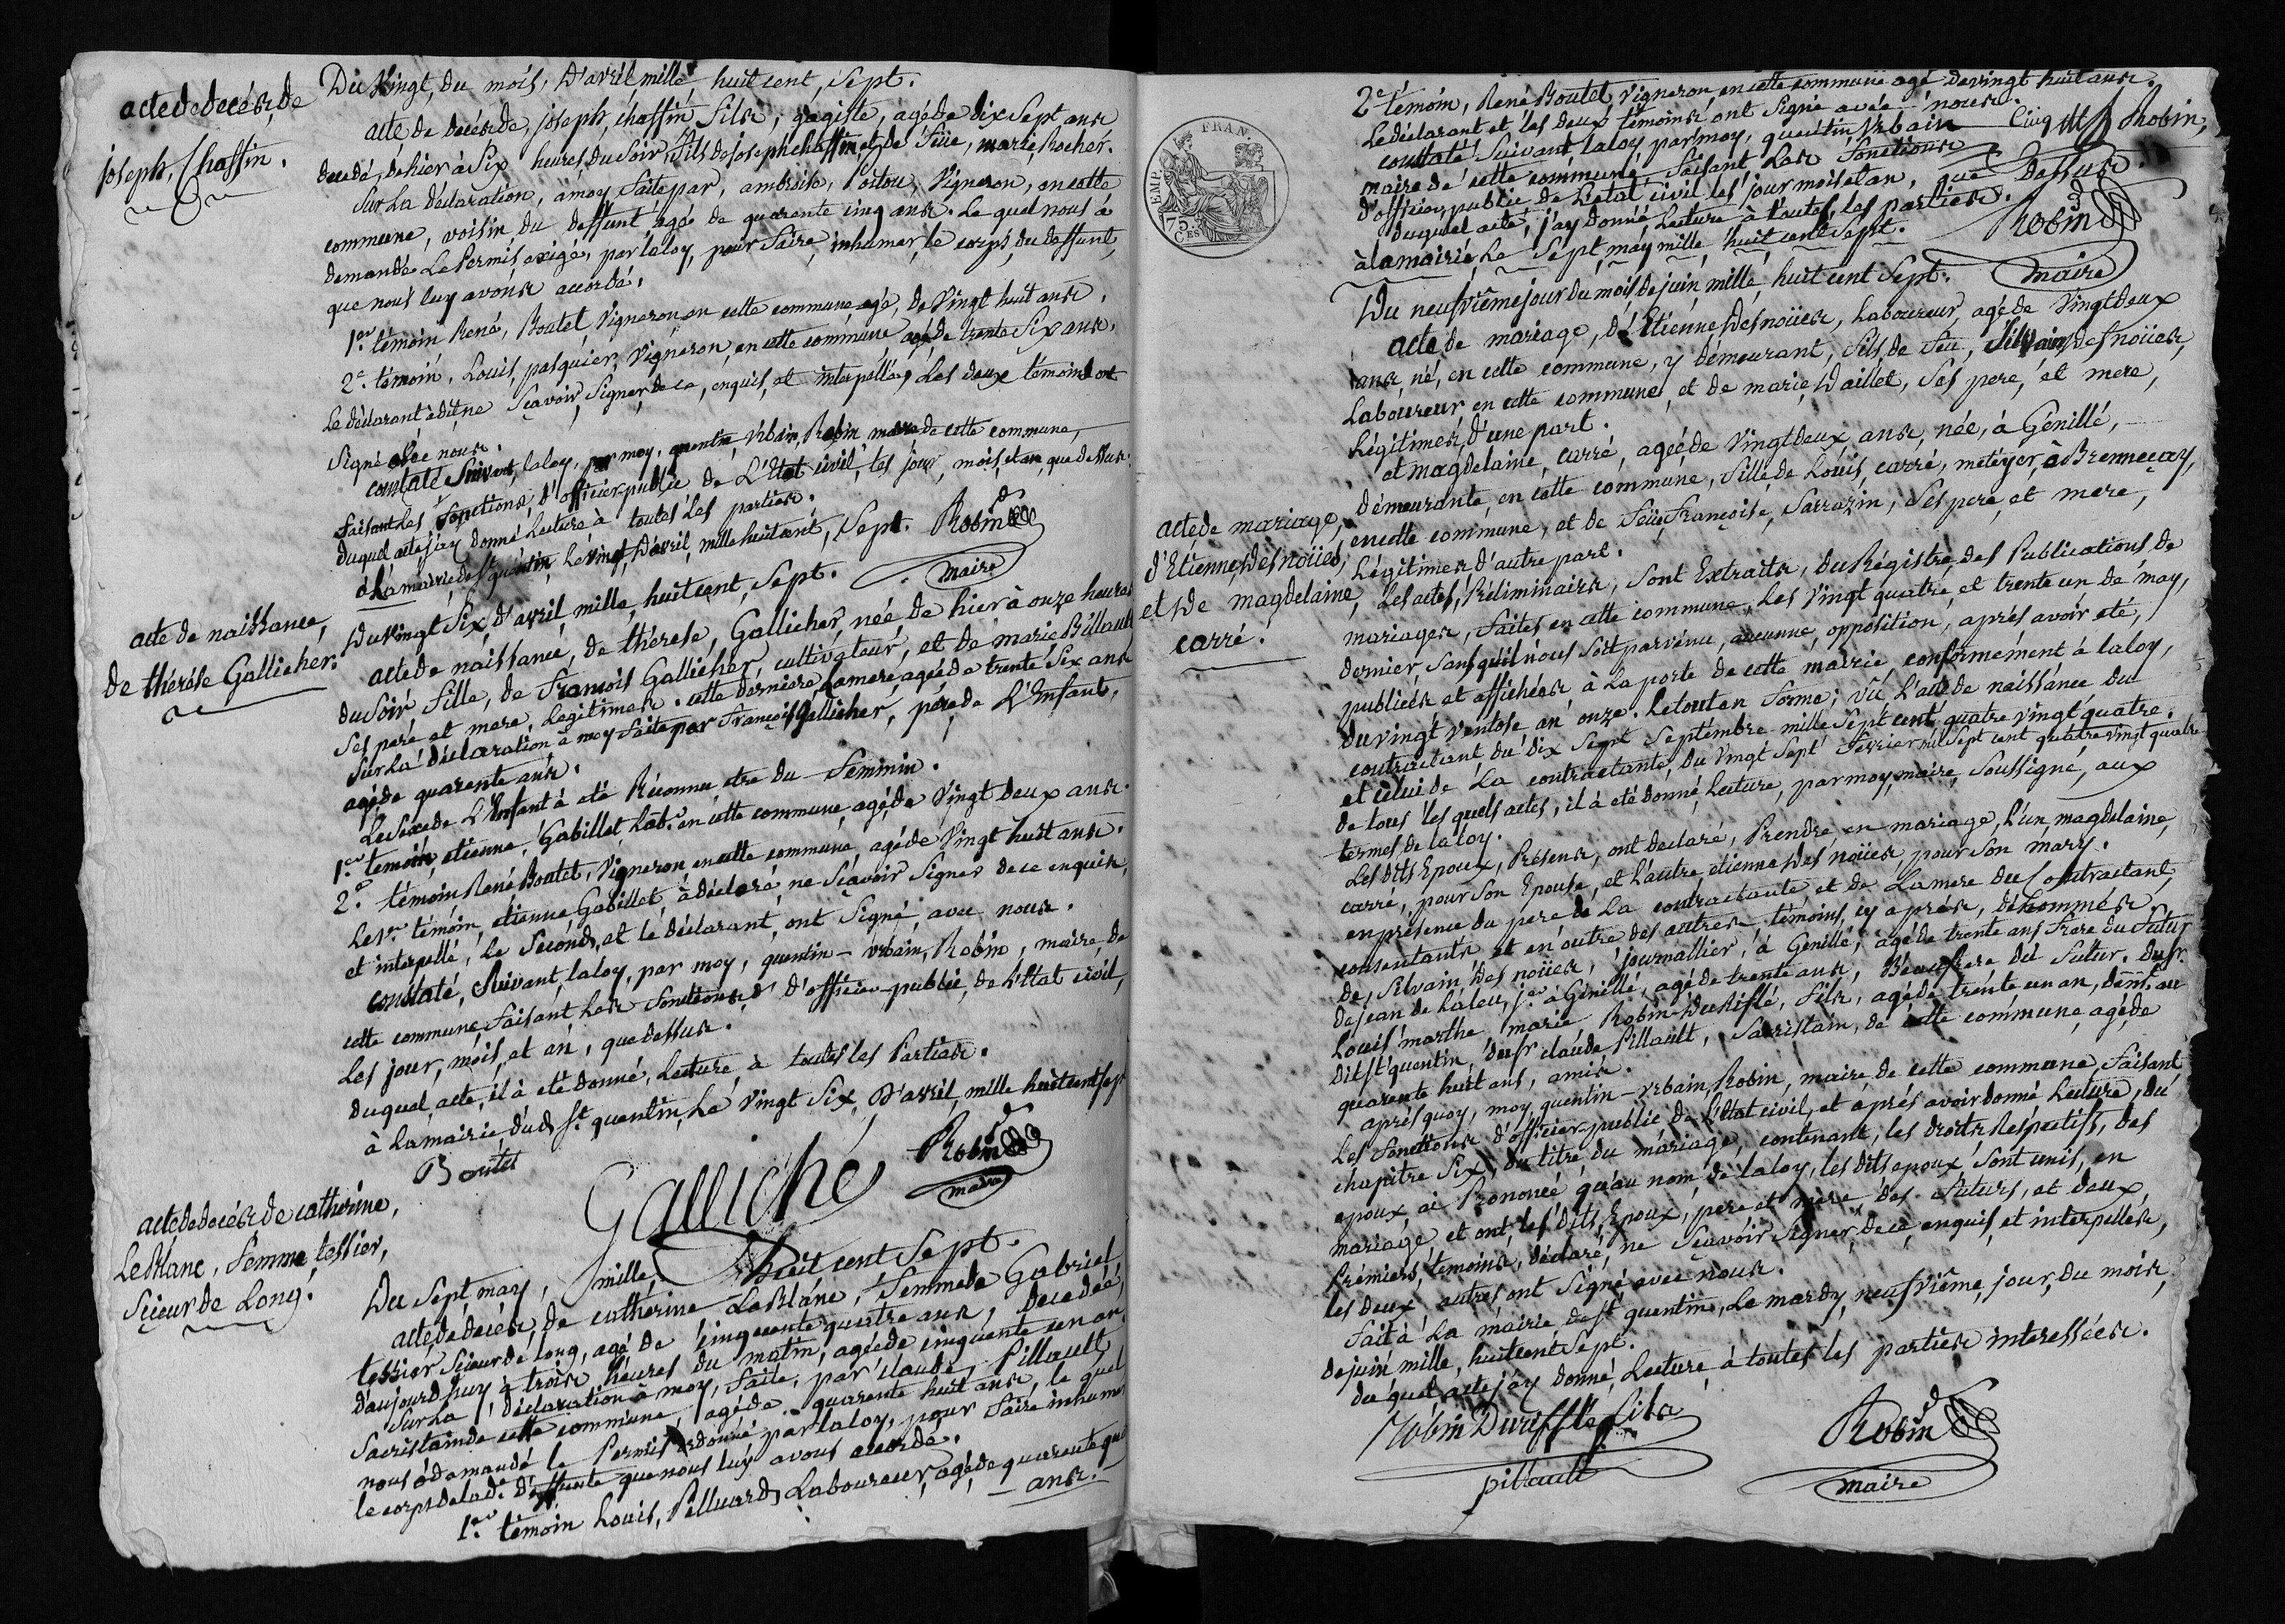 acte de decés, de
joseph, Chaffin.
Du Vingt, du mois, D'avril mille, huit cent, Sept.
acte de decés de, joseph, chaffin Fils, gagiste, agé de dix Sept ans
decedé, de hier à Six heures du Soir, Fils de joseph chaffin, et de Füe, marie, Rocher.
Sur La déclaration, à moy Faite par, ambroise, Poitou, Vigneron, en cette
commune, voisin du deffunt agé de quarente cinq ans. Le quel nous à
demandé Le Permis exigé, par la loy, pour Faire, inhumer, Le corps, du deffunt,
que nous luy avons accordé.
1er. témoin René, Boutet, Vigneron en cette commune agé, de Vingt huit ans.
2e. témoin, Louis, pasquier, Vigneron, en cette commune agé de trente Six ans.
Le déclarant à dit ne Sçavoir, Signer de ce, enquis, et interpellé, Les deux témoins ont
Signé avec nous.
constaté Suivant, la loy, par moy, quentin, Vrbain, Robin maire de cette commune,
Faisant Les Fonctions, d'officier public de L'Etat civil, les jour, mois, et an, que dessus.
duquel acte j'ay donné Lecture à toutes Les parties.
à La mairie, de St. quentin Le vingt, D'avril, mille huit cent, Sept. Robin
maire
acte de naissance,
de thérése Gallicher.
Du Vingt Six, d'avril, mille, huit cent, Sept.
acte de naissance, de thérese, Gallicher, née de hier à onze heures
du Soir Fille, de François Gallicher, cultivateur, et de marie Billault
Ses pere et mere, Legitimes. cette derniere, La mere, agée de trente Six ans
Sur La déclaration à moy Faite par François Gallicher, pére de L'Enfant,
agé de quarente ans.
Le Sexe de L'Enfant à eté Réconnu etre du Feminin.
1er. témoin, etienne, Gabillet, Lab. en cette commune, agé de Vingt deux ans.
2e. témoin, René Boutet, Vigneron en cette commune, agé de Vingt huit ans.
Le 1er. témoin, etienne Gabillet, à déclaré ne Sçavoir Signer de ce enquis,
et interpellé, Le Second, et le déclarant, ont Signé, avec nous.
constaté, Suivant, la loy, par moy, quentin - Vrbain, Robin, maire, de
cette commune, Faisant Les Fonctions, d'officier-public, de L'Etat civil,
Les jour, mois, et an, que dessus.
duquel, acte, il à eté donné, Lecture, à toutes les Parties.
à La mairie dud. St. quentin, Le Vingt Six, D'avril, mille huit cent sept
Boutet
Galliché
Robin
maire
acte de decés de catherine,
Le Blanc, Femme, tessier,
Scieur de Long.
Du Sept may, mille, huit cent Sept.
acte de decés, de catherine Le Blanc, Femme de Gabriel,
tessier Scieur de Long, agé de cinquente quatre ans, decedée
d'aujourd'huy à trois heures du matin, agée de cinquente un an.
Sur La déclaration à moy, Faite, par Claude, Pillault
Sacristain de cette commune, agé de quarente huit ans, le quel
nous à demandé le Permis ordonné par la loy, pour Faire inhumer
le corps de lade. Deffunte que nous luy avons accordé.
1er. témoin Louis, Pelluard, Laboureur, agé de quarente
ans.
2e. témoin, René Boutet, Vigneron en cette commune agé de vingt huit ans.
Le déclarant et les deux témoins ont Signé avec nous.
constaté Suivant la loy par moy, quentin Vrbain Robin,
maire de cette commune, Faisant Les Fonctions
d'officier, public de L'etat civil les jour mois et an, que dessus.
duquel acte, j'ay donné Lecture à toutes, les parties.
à la mairie, Le Sept, may mille, huit cent Sept.
Robin
maire
EMP. FRAN.
75
CES
acte de mariage,
d'Etienne, Desnoües,
et de magdelaine,
carré.
Du neufviême jour du mois de juin mille, huit cent Sept.
acte de mariage, d'Etienne, Desnoües, Laboureur, agé de Vingt deux
ans, né, en cette commune, y démeurant, Fils, de Feu, Silvain, Desnoües,
Laboureur, en cette commune, et de marie, Daillet, Ses pere, et mere,
Légitimes, d'une part.
et magdelaine, carré, agée de Vingt deux ans, née, à Génillé,
démeurante, en cette commune, Fille de Loüis, carré, metéyer, à Brenneçay,
en cette commune, et de Feüe Françoise, Sarrazin, Ses pere, et mere,
Légitimes d'autre part.
Les actes, Préliminaires, Sont Extraits, du Régistre, des Publications de
mariages, Faites, en cette commune, Les Vingt quatre, et trente un de may,
dernier, Sans qu'il nous Soit parvenu, aucunne, opposition, aprés avoir eté,
publiées et affichées, à La porte de cette mairie, conformément à la loy,
du vingt ventose an onze. Le tout en Forme; vû L'acte de naissance du
contractant du dix Sept Septembre mille Sept cent quatre vingt quatre.
et celui de La contractante, du Vingt Sept Fevrier mil Sept cent quatre vingt quatre
de tous les quels actes, il à eté donné, Lecture, par moy, maire, Soussigné, aux
termes, de la loy.
Les dits Epoux, Présens, ont declaré, Prendre, en mariage, L'un, magdelaine,
carré, pour Son Epouse, et L'autre, etienne, Desnoües, pour Son mary.
en présence du pere de La contractante, et de La mere du Contractant,
consentants, et en outre des autres témoins, cy aprés, dénommés,
de, Silvain, Desnoües, journallier, à Genillé, agé de trente ans Frere du Futur
de jean de Laleu, je. à Génillé, agé de trente ans, Beau frere du Futur. du Sr.
Louis marthe marie, Robin-Duriflé, Fils, agé de trente un an, demt. au
dit St. quentin, du Sr claude Pillault, Sacristain, de cette commune, agé de
quarente huit ans, amis.
aprés quoy, moy, quentin - Vrbain, Robin, maire de cette commune, Faisant
Les Fonctions d'officier-public de L'Etat civil, et aprés avoir donné Lecture, du
chapitre Six, du titre du mariage, contenant, les droits Réspectifs, des
epoux ai Prononcé qu'au nom de la loy, les dits epoux Sont unis, en
mariage et ont, les dits, Epoux, pere et mere des Futurs, et deux,
Prémiers, temoins, déclaré, ne Sçavoir Signer de ce, enquis, et interpellés,
les deux autres ont Signé avec nous.
Fait à La mairie de St quentin, Le mardy, neufviême, jour, du mois
de juin mille, huit cent Sept.
du quel acte j'ay donné, Lecture, à toutes les parties interessées.
Robin Duriffle, fils
pillault
Robin
maire